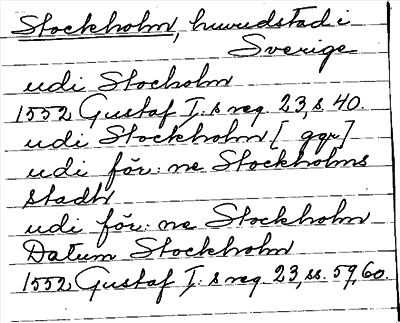 Stockholm, huvudstad i
Sverige
udi Stocholm
1552 Gustaf I:s reg. 23, s 40.
udi Stockholm [ ggr]
udi för:ne Stockholms
stadh
udi för:ne Stockholm
Datum Stockholm
1552 Gustaf I:s reg. 23, ss. 59, 60.